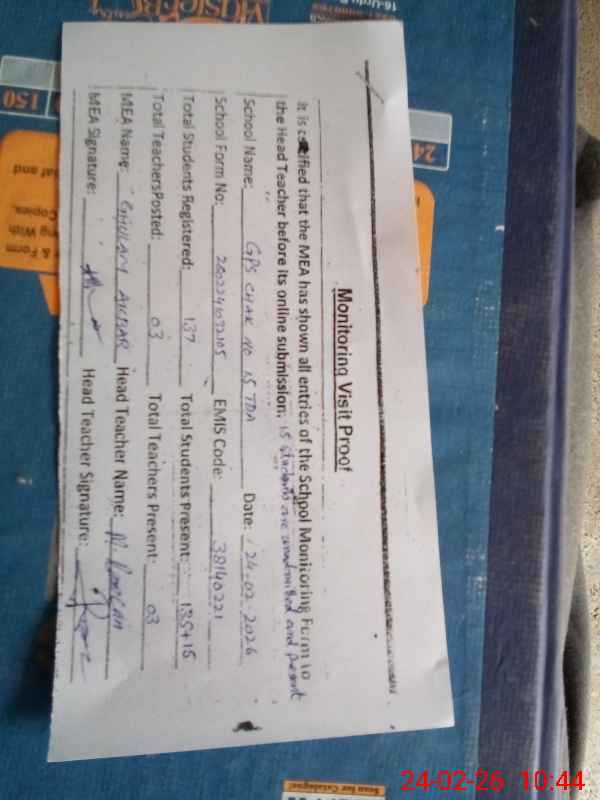 Monitoring Visit Proof
It is certified that the MEA has shown all entries of the School Monitoring Form to
the Head Teacher before its online submission. 15 students are unadmitted and present
School Name: GPS CHAK NO 15 TDA Date: 24-02-2026
School Form No: EMIS Code: 38140221
Total Students Registered: 137 Total Students Present: 135+15
Total TeachersPosted: 03 Total Teachers Present: 03
MEA Name: GHULAM AKBAR Head Teacher Name:
MEA Signature: Head Teacher Signature:
150
24
& Form
ng With
Copies.
taf and
Scan for Catalogue!
24-02-26 10:44